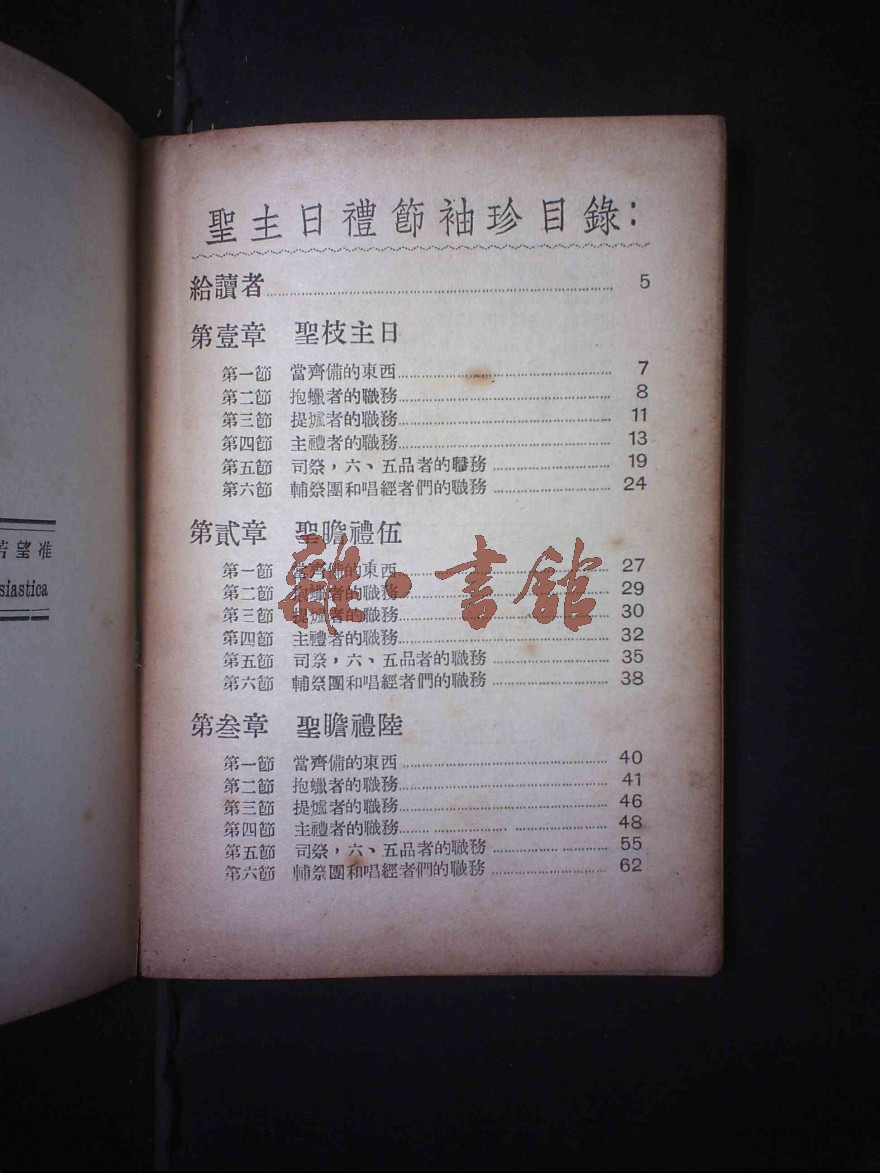 聖主日禮節袖珍目錄：
給讀者 5
第壹章 聖枝主日
第一節 當齊備的東西 7
第二節 抱蠟者的職務 8
第三節 提爐者的職務 11
第四節 主禮者的職務 13
第五節 司祭，六、五品者的職務 19
第六節 輔祭團和唱經者們的職務 24
第貳章 聖瞻禮伍
第一節 當齊備的東西 27
第二節 抱蠟者的職務 29
第三節 提爐者的職務 30
第四節 主禮者的職務 32
第五節 司祭，六、五品者的職務 35
第六節 輔祭團和唱經者們的職務 38
第叁章 聖瞻禮陸
第一節 當齊備的東西 40
第二節 抱蠟者的職務 41
第三節 提爐者的職務 46
第四節 主禮者的職務 48
第五節 司祭，六、五品者的職務 55
第六節 輔祭團和唱經者們的職務 62
雜·書館
若望准
siastica